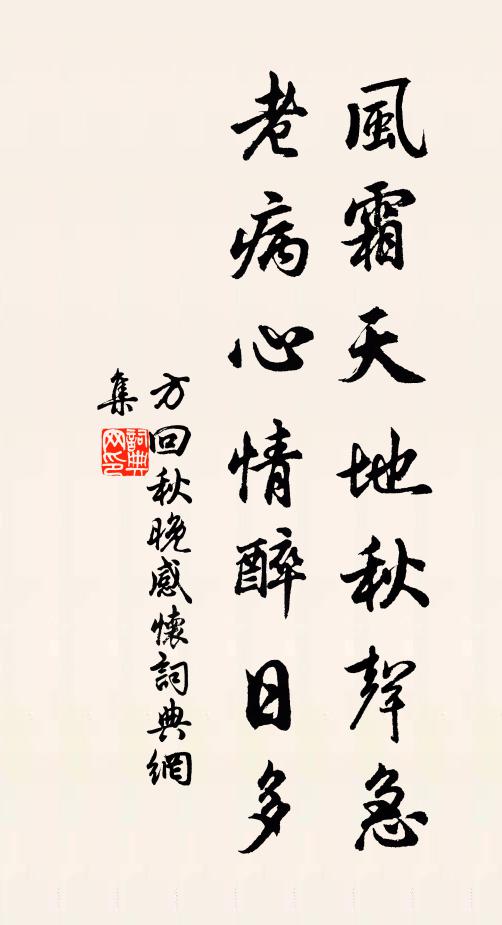 風霜天地秋聲急
老病心情醉日多
方回秋晚感懷詞典網
集
詞典網印